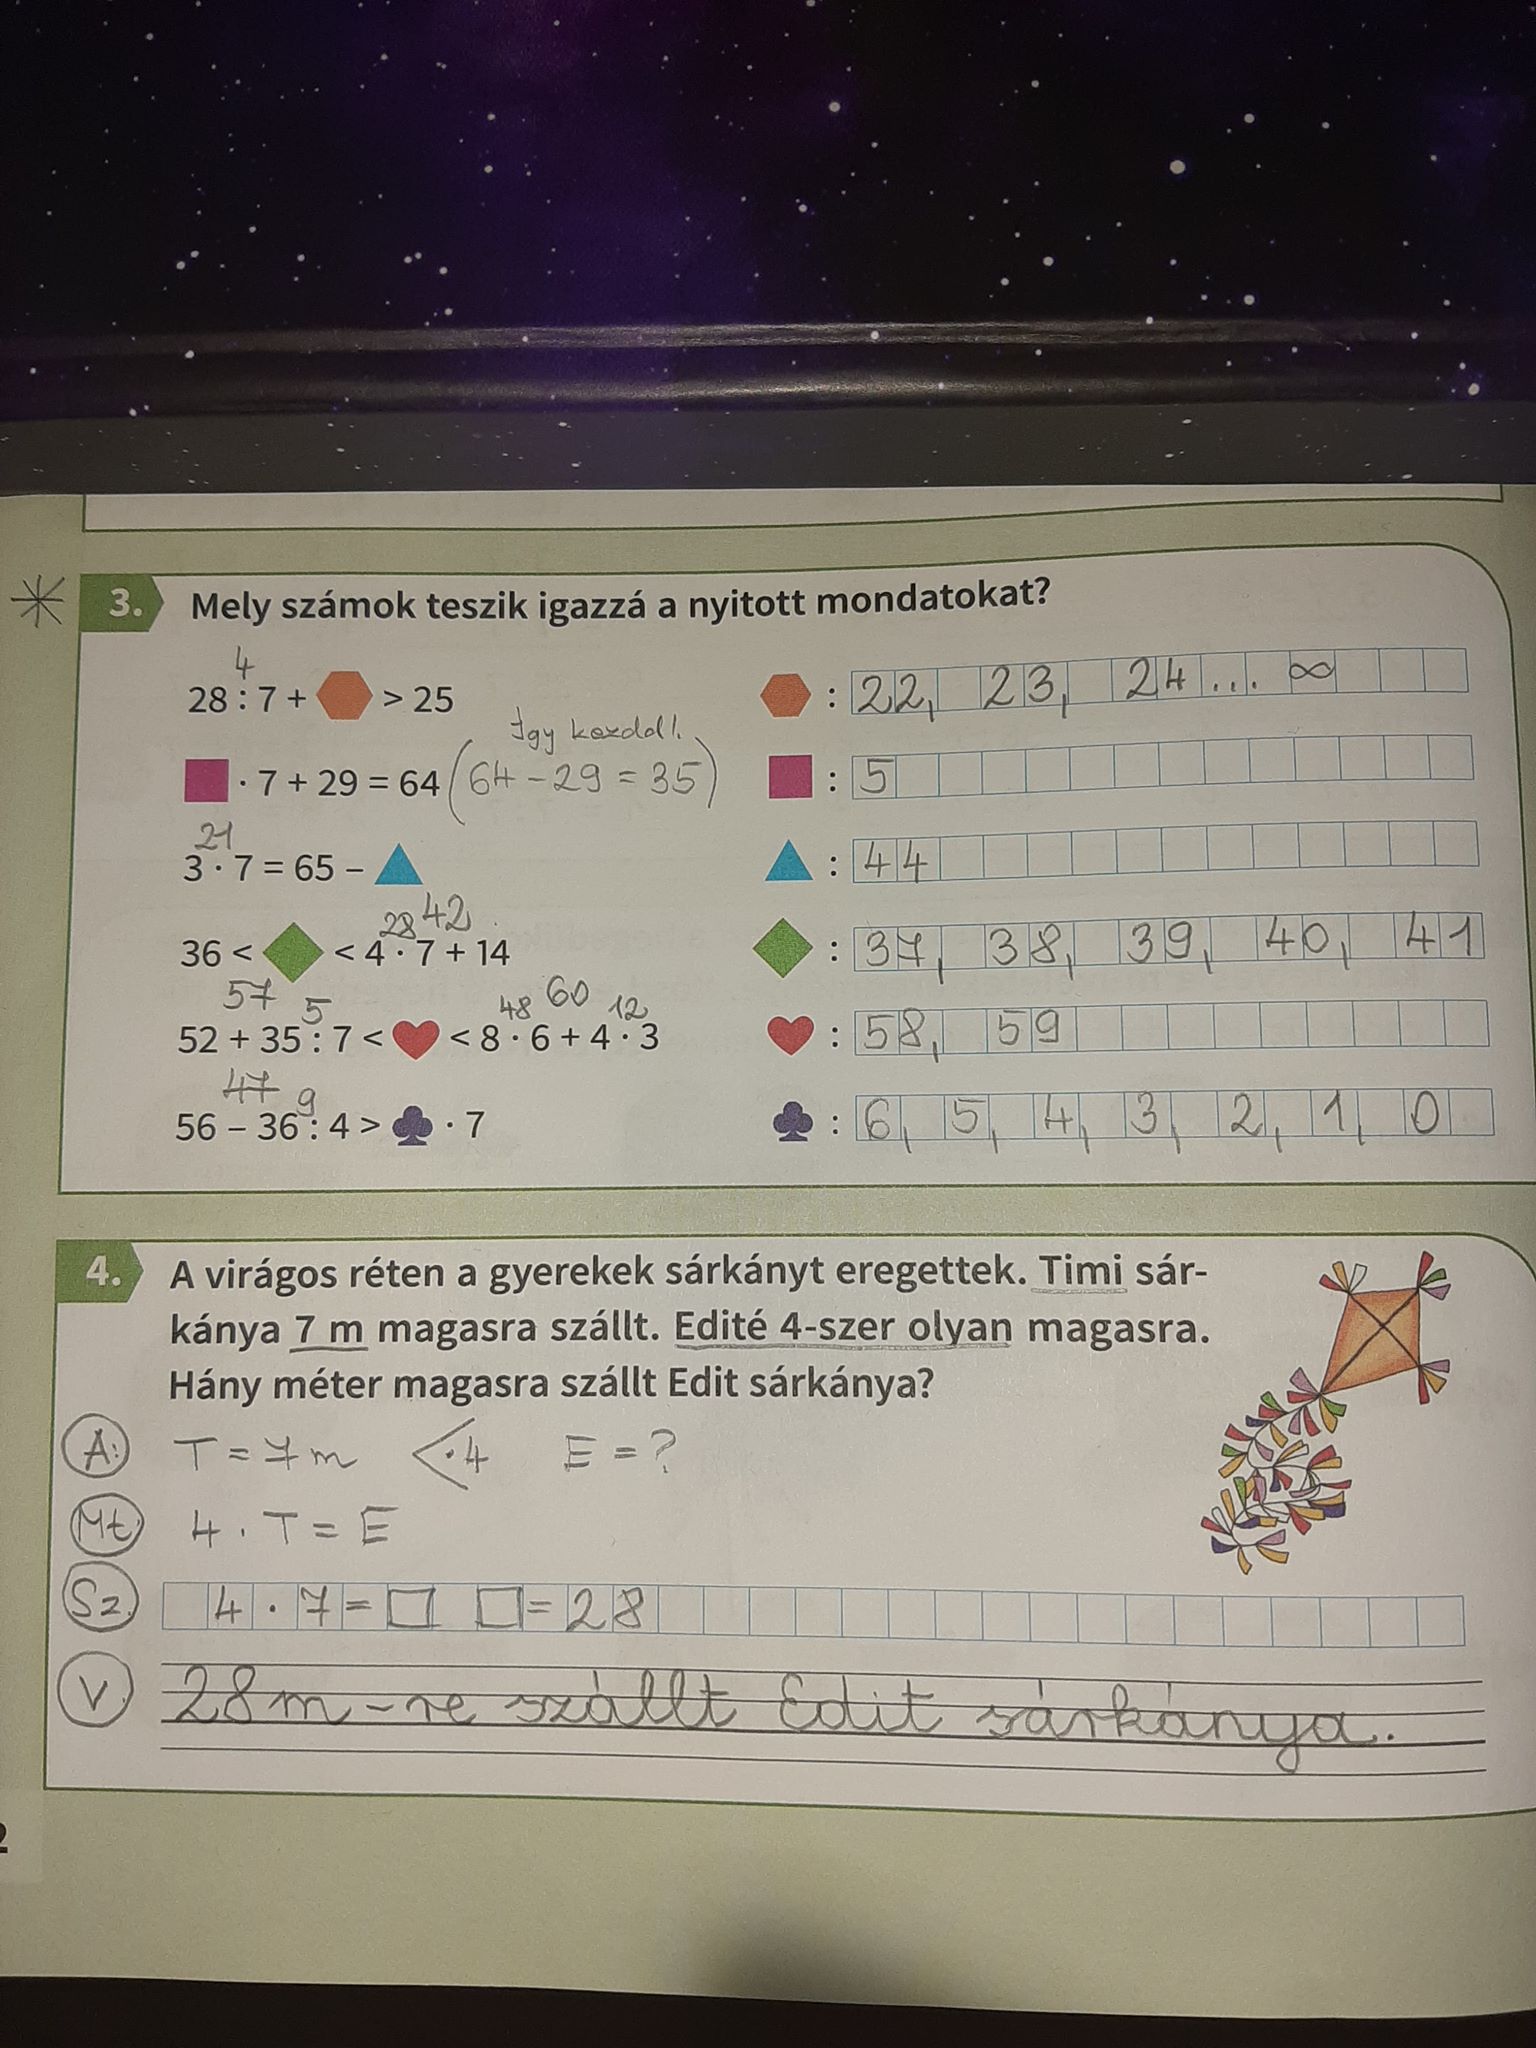 3. Mely számok teszik igazzá a nyitott mondatokat?
4
28 : 7 + > 25 : 22, 23, 24 ... ∞
Így kezdd!
· 7 + 29 = 64 (64 - 29 = 35) : 5
21
3 · 7 = 65 – : 44
28 42
36 < < 4 · 7 + 14 : 37, 38, 39, 40, 41
57 5 48 60 12
52 + 35 : 7 < < 8 · 6 + 4 · 3 : 58, 59
47 9
56 – 36 : 4 > · 7 : 6, 5, 4, 3, 2, 1, 0
4. A virágos réten a gyerekek sárkányt eregettek. Timi sár-
kánya 7 m magasra szállt. Edité 4-szer olyan magasra.
Hány méter magasra szállt Edit sárkánya?
A: T = 7 m < · 4 E = ?
Mt. 4 · T = E
Sz. 4 · 7 = □ □ = 28
V. 28 m-re szállt Edit sárkánya.
2